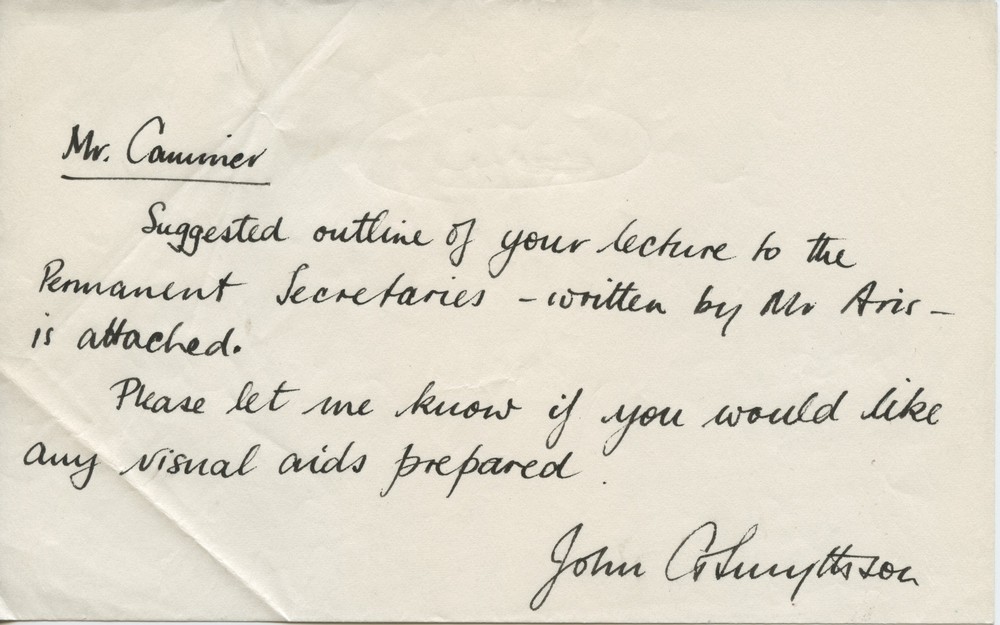 Mr. Caminer
Suggested outline of your lecture to the
Permanent Secretaries - written by Mr Aris -
is attached.
Please let me know if you would like
any visual aids prepared.
John